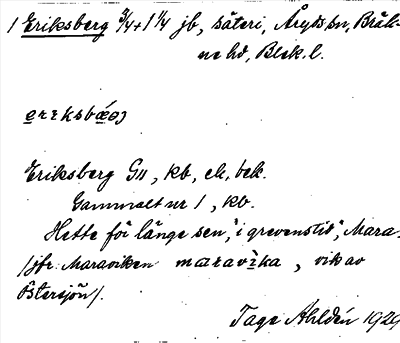 1 Eriksberg 3/4+1 1/4 jb, säteri, Åryds sn, Bräk-
ne hd, Blek. l.
Eriksberg Gn, kb, ek, bek.
Gammalt nr 1, kb.
Hette för länge sen, "i grevens tid", Mara.
/jfr Maraviken maravika, vik av
Östersjön/.
Tage Ahldén 1929